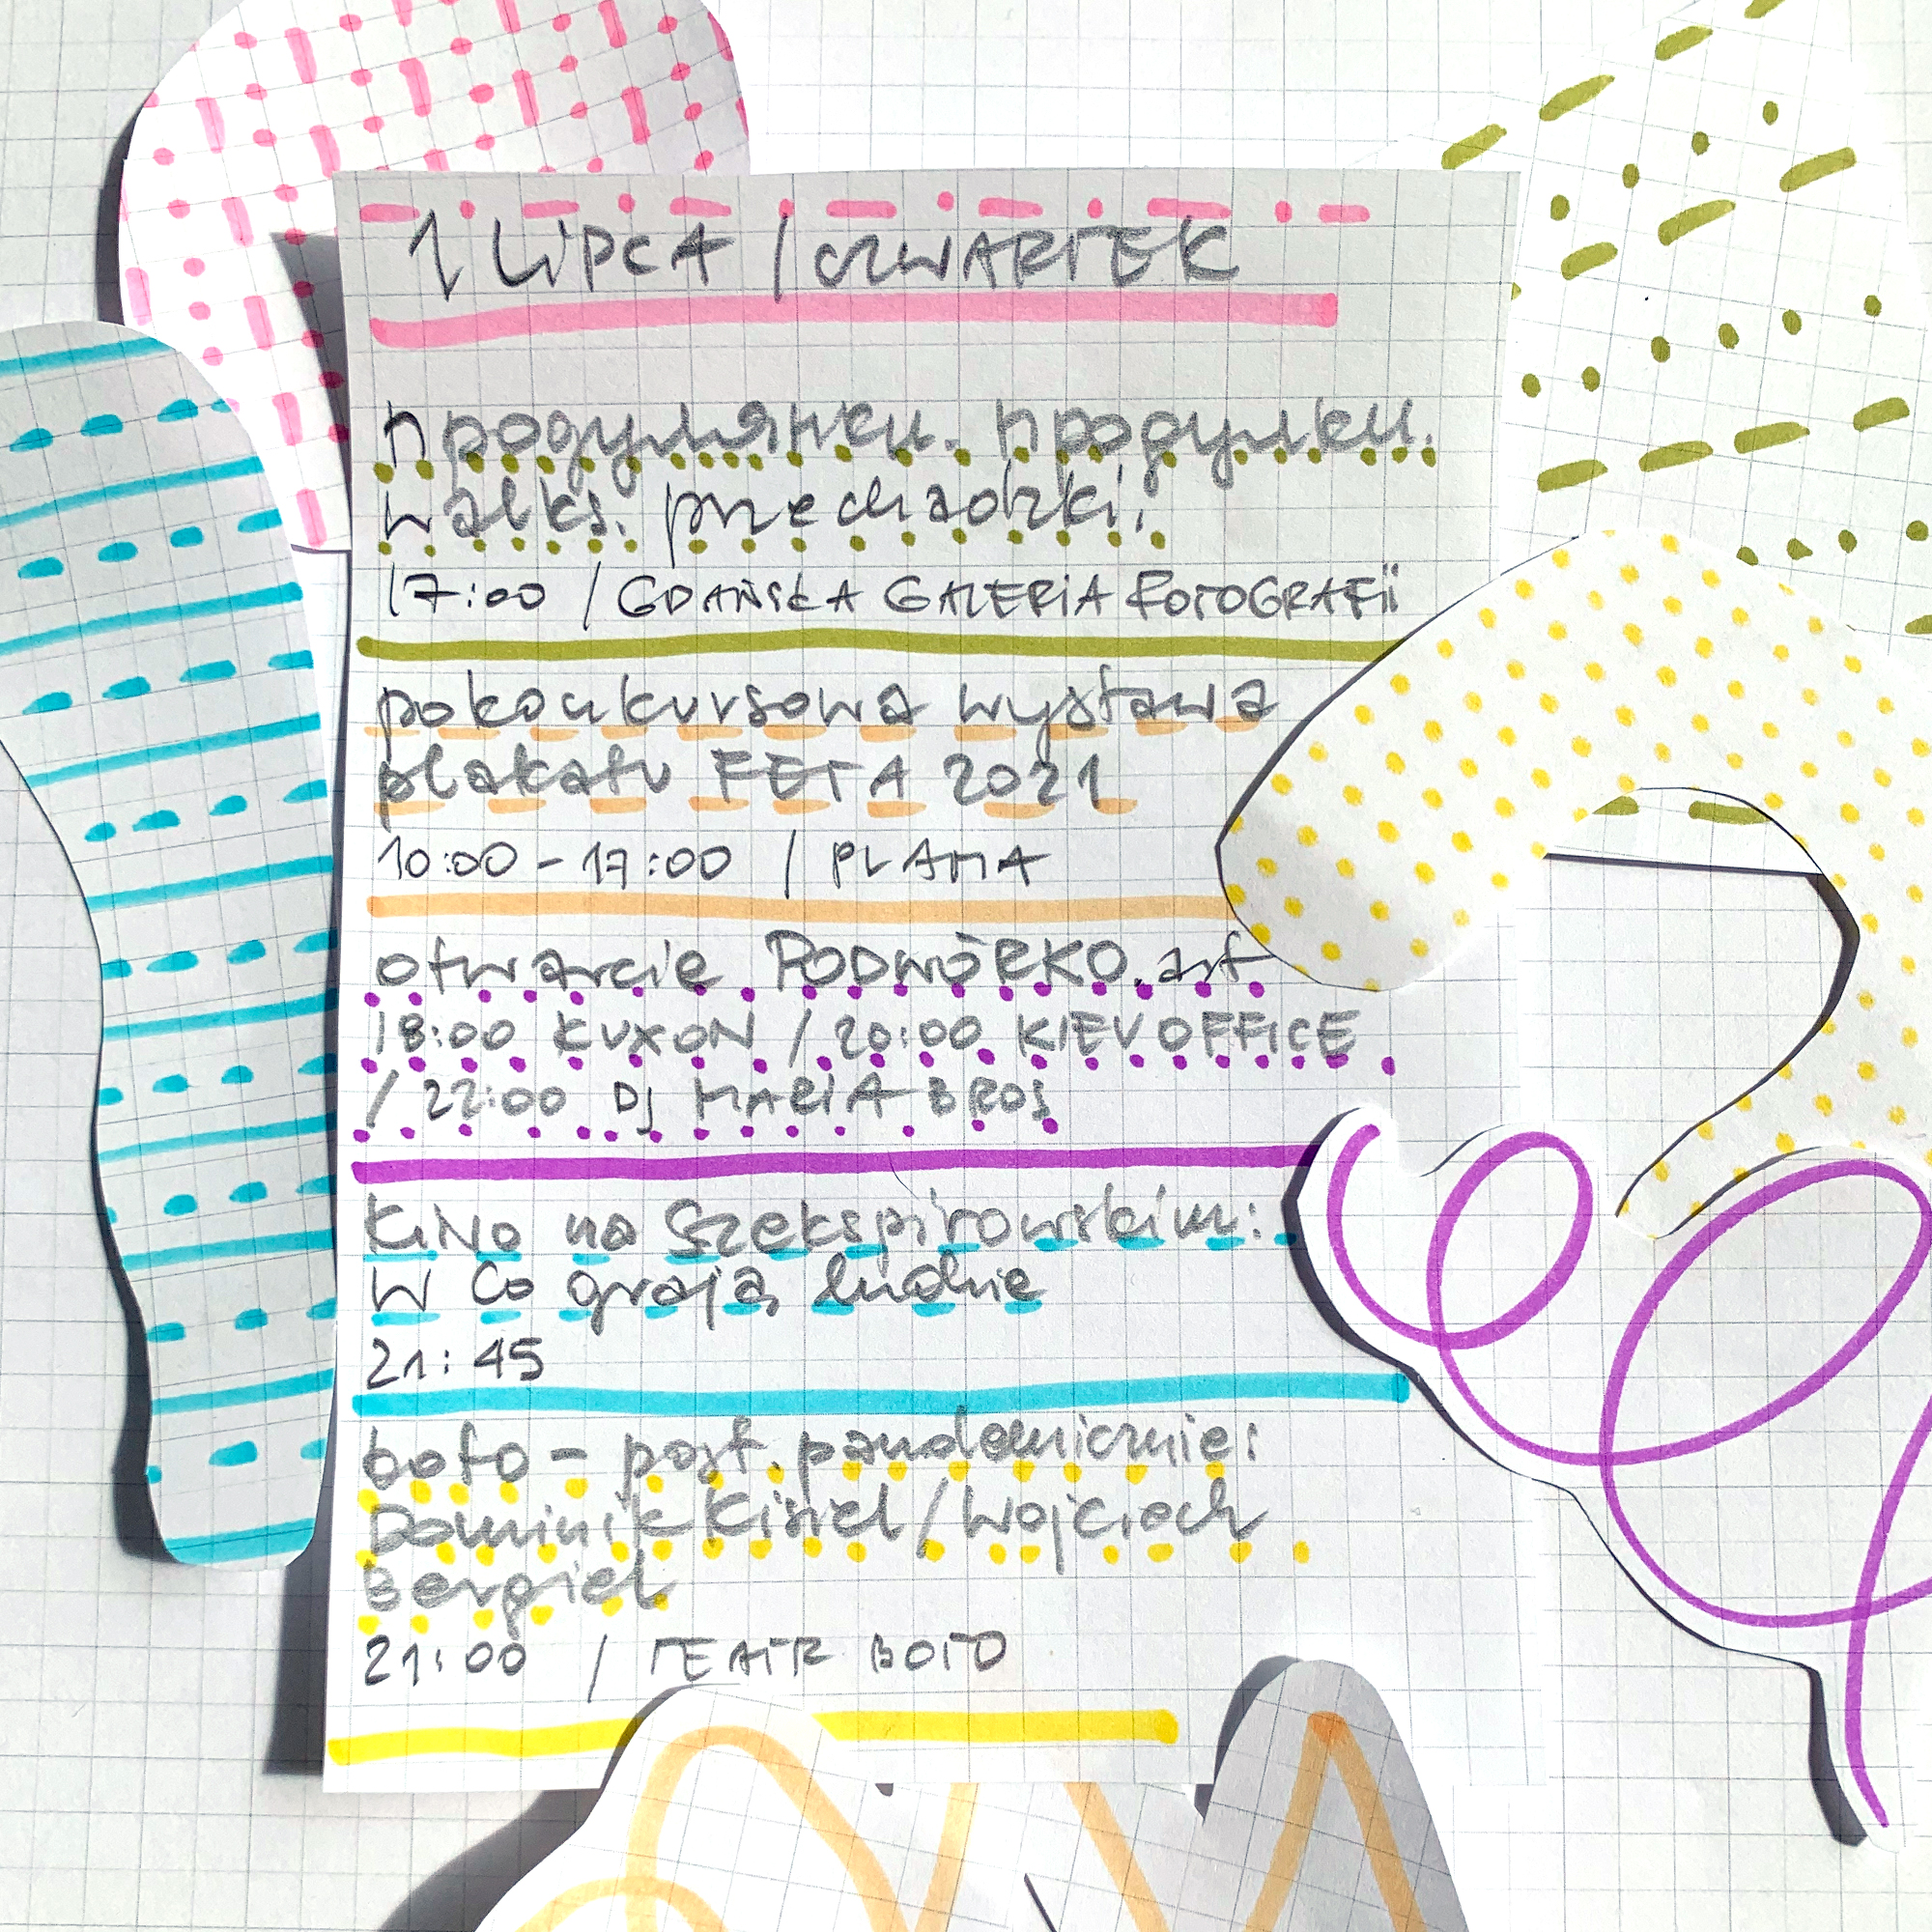 1 LIPCA / CZWARTEK
прогулянки. прогулки.
walks. przechadzki.
17:00 / GDAŃSKA GALERIA FOTOGRAFII
pokonkursowa wystawa
plakatu FETA 2021
10:00 - 17:00 / PLAMA
otwarcie PODWÓRKO.art
18:00 KUXON / 20:00 KIEV OFFICE
/ 22:00 DJ MARIA BROS
KiNo na Szekspirowskim:
W co grają ludzie
21:45
boto - post.pandemicznie:
Dominik Kisiel / Wojciech
Bergiel
21:00 / TEATR BOTO